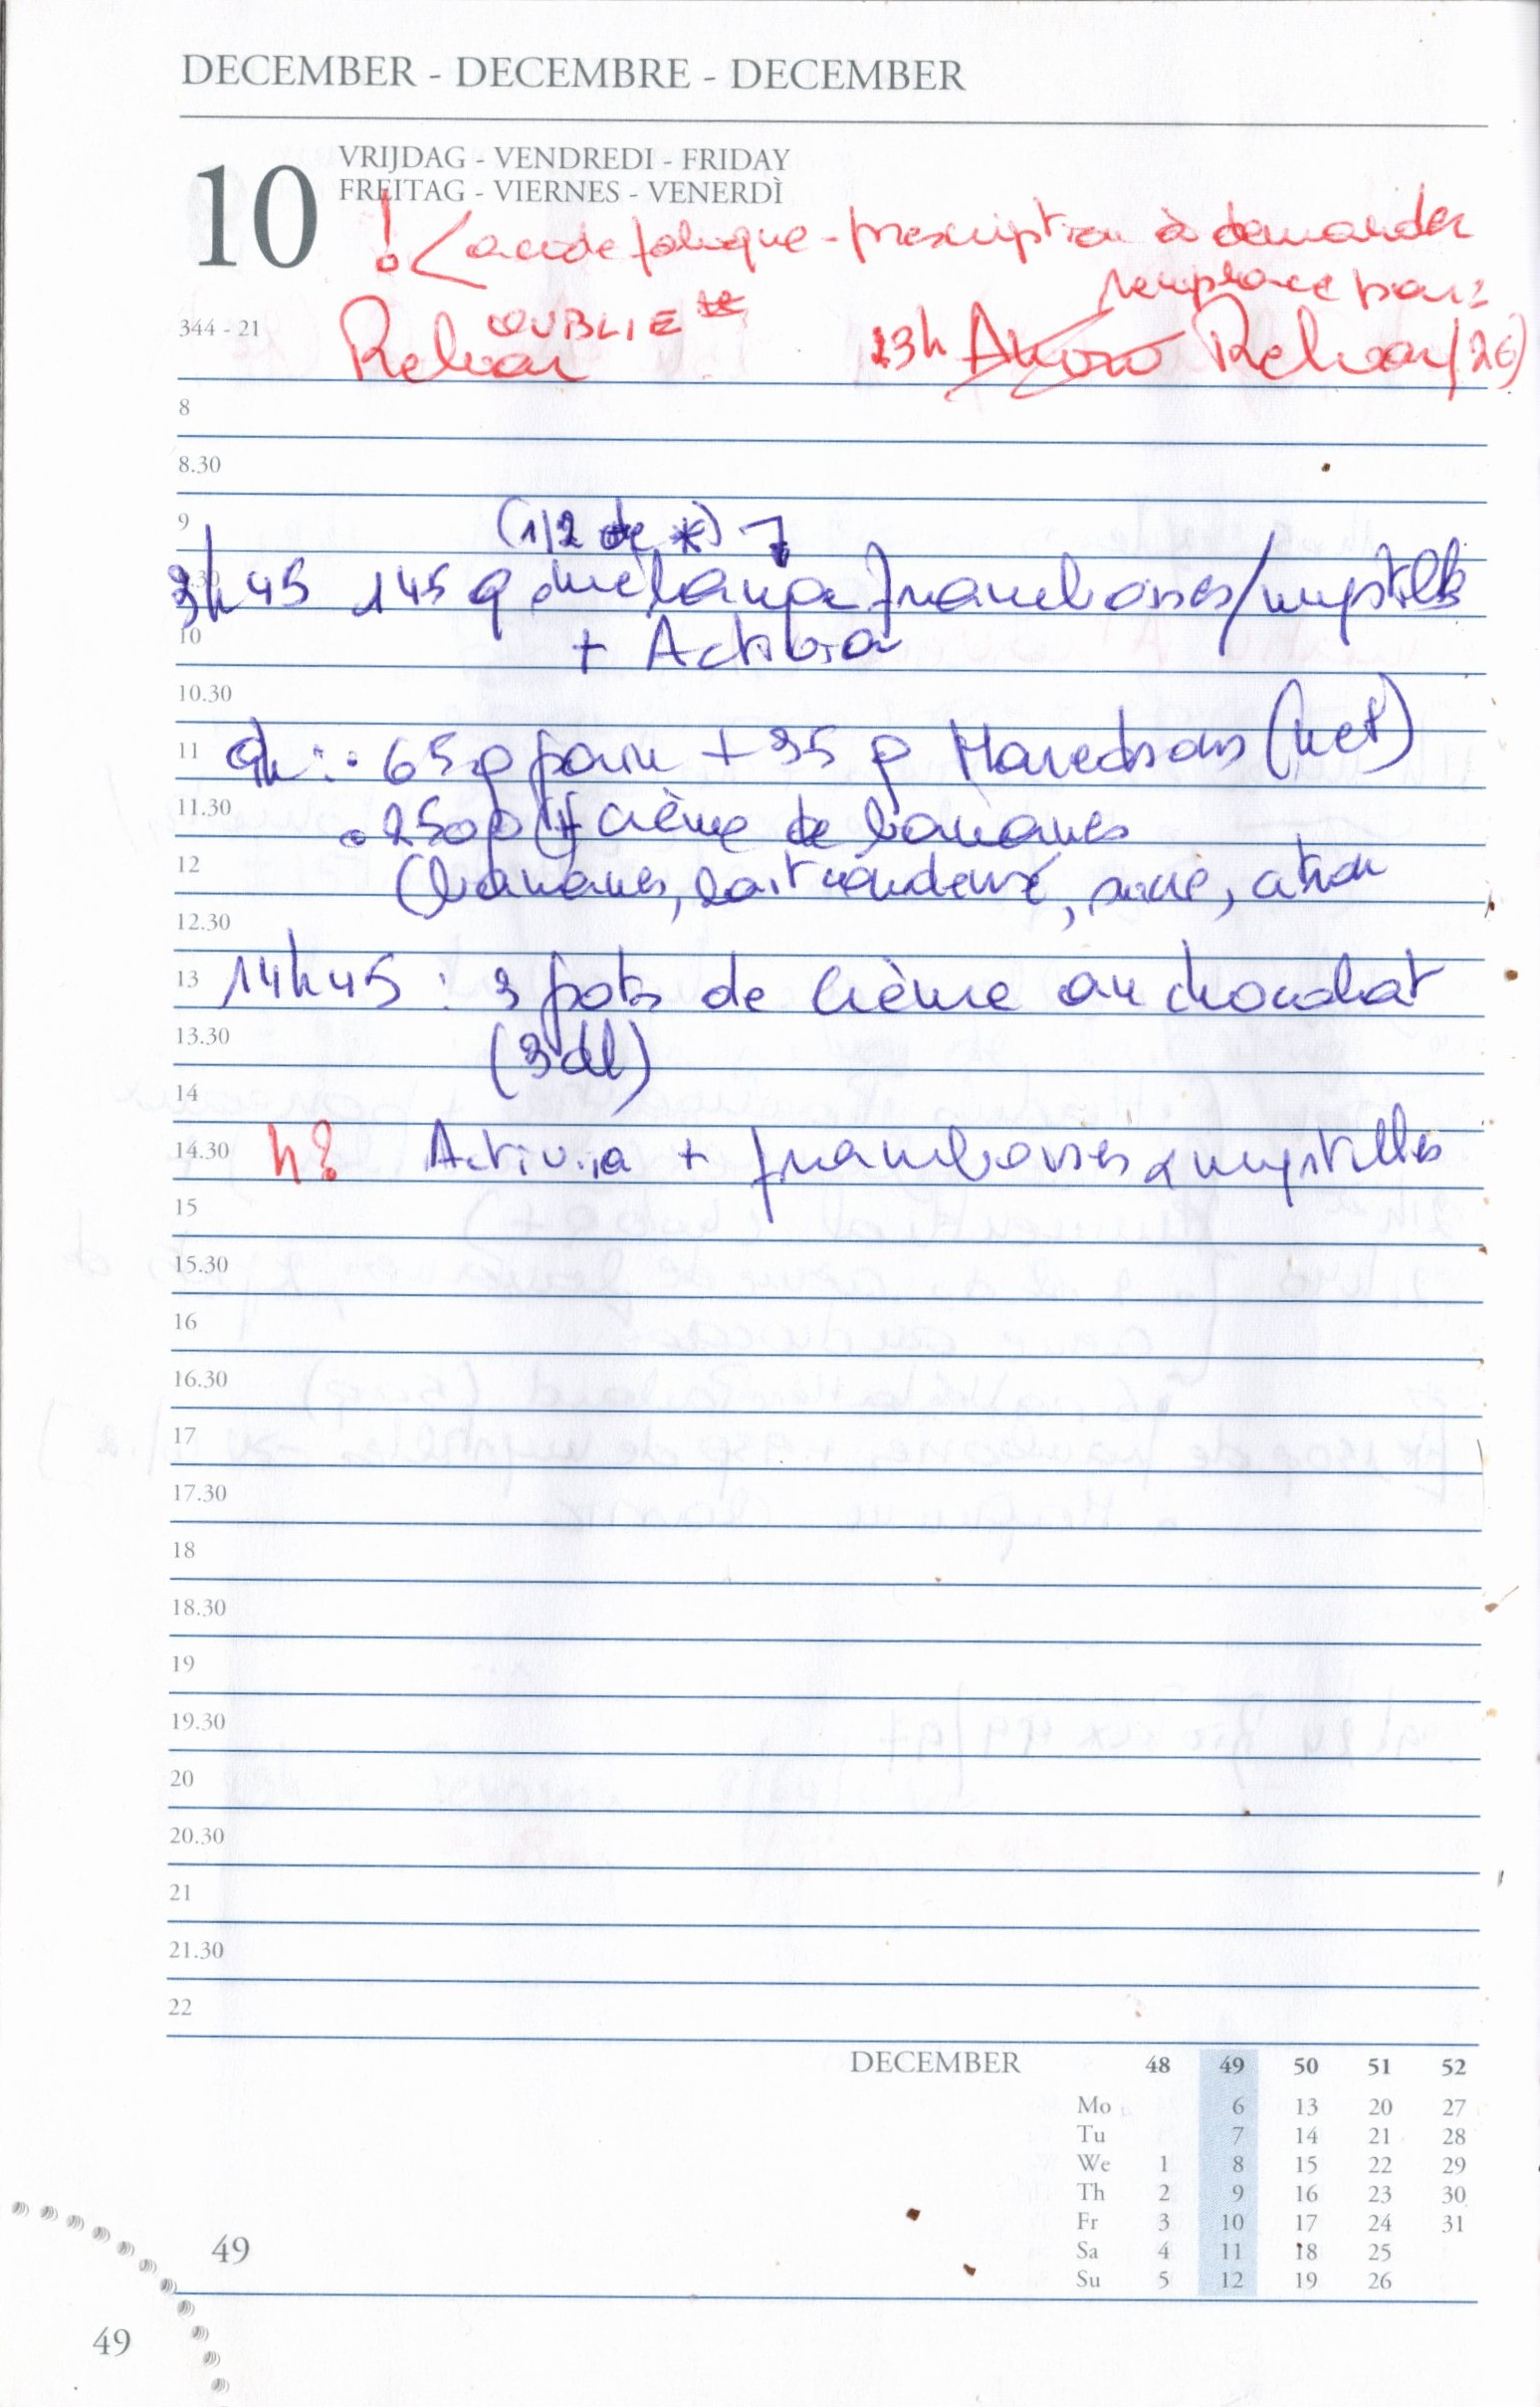 DECEMBER - DECEMBRE - DECEMBER
10
VRIJDAG - VENDREDI - FRIDAY
FREITAG - VIERNES - VENERDÌ
! < acide folique - prescription à demander
remplacé par:
344 - 21
OUBLIE
Relvar 23h Relvar (26)
8
8.30
9
(1/2 de *)
3h45 145 g mélange framboises/myrtilles
10
+ Activia
10.30
11
9h : • 65 g pain + 35 g Maredsous (net)
11.30
• 250 g crème de bananes
12
(bananes, lait condensé, sucre, citron
12.30
13
14h45 : 3 pots de crème au chocolat
13.30
(3 dl)
14
14.30
h? Activia + framboises & myrtilles
15
15.30
16
16.30
17
17.30
18
18.30
19
19.30
20
20.30
21
21.30
22
DECEMBER 48 49 50 51 52
Mo 6 13 20 27
Tu 7 14 21 28
We 1 8 15 22 29
Th 2 9 16 23 30
Fr 3 10 17 24 31
Sa 4 11 18 25
Su 5 12 19 26
49
49